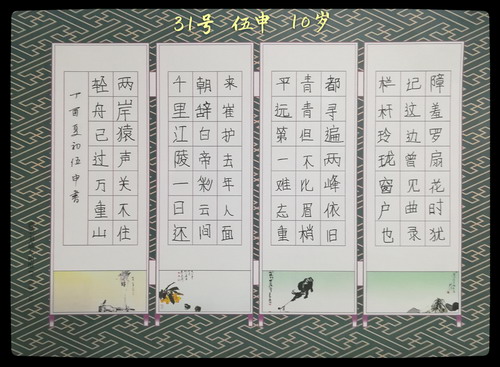 31号 伍申 10岁
障羞罗扇花时犹
记这边曾见曲录
栏杆玲珑窗户也
都寻遍两峰依旧
青青但不比眉梢
平远第一难忘重
来崔护去年人面
朝辞白帝彩云间
千里江陵一日还
两岸猿声关不住
轻舟已过万重山
丁酉夏初伍申书